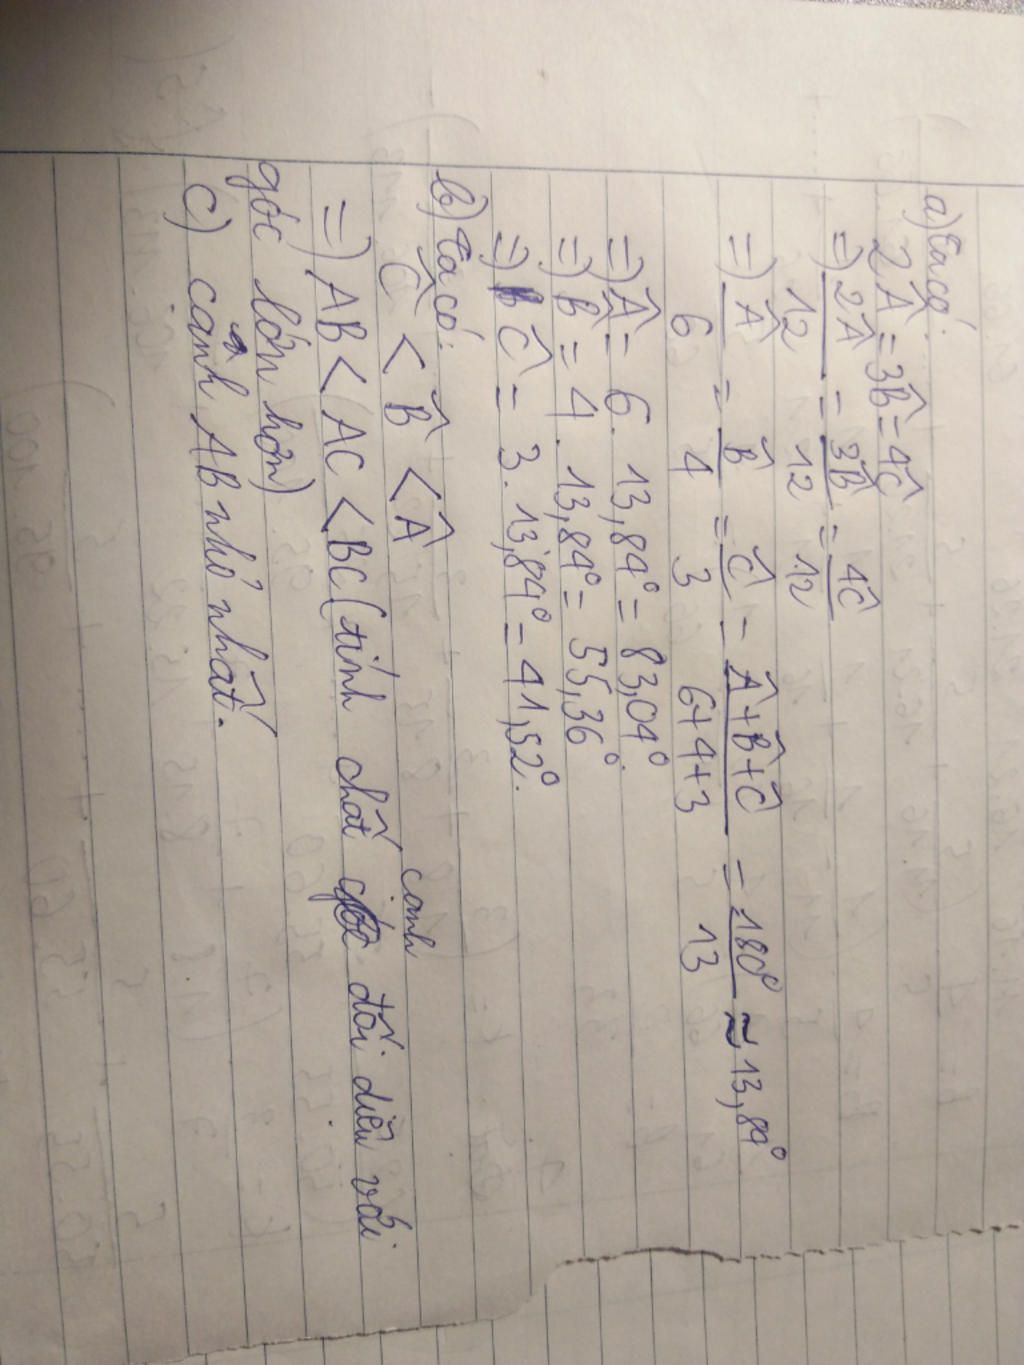 a) Ta có:
2Â = 3B̂ = 4Ĉ
=) 2Â/12 = 3B̂/12 = 4Ĉ/12
=) Â/6 = B̂/4 = Ĉ/3 = Â+B̂+Ĉ/6+4+3 = 180°/13 ≈ 13,84°
=) Â = 6. 13,84° = 83,04°.
=) B̂ = 4. 13,84° = 55,36°.
=) Ĉ = 3. 13,84° = 41,52°.
b) Ta có:
Ĉ < B̂ < Â
=) AB < AC < BC (tính chất cạnh đối diện với
góc lớn hơn)
c) cạnh AB nhỏ nhất.